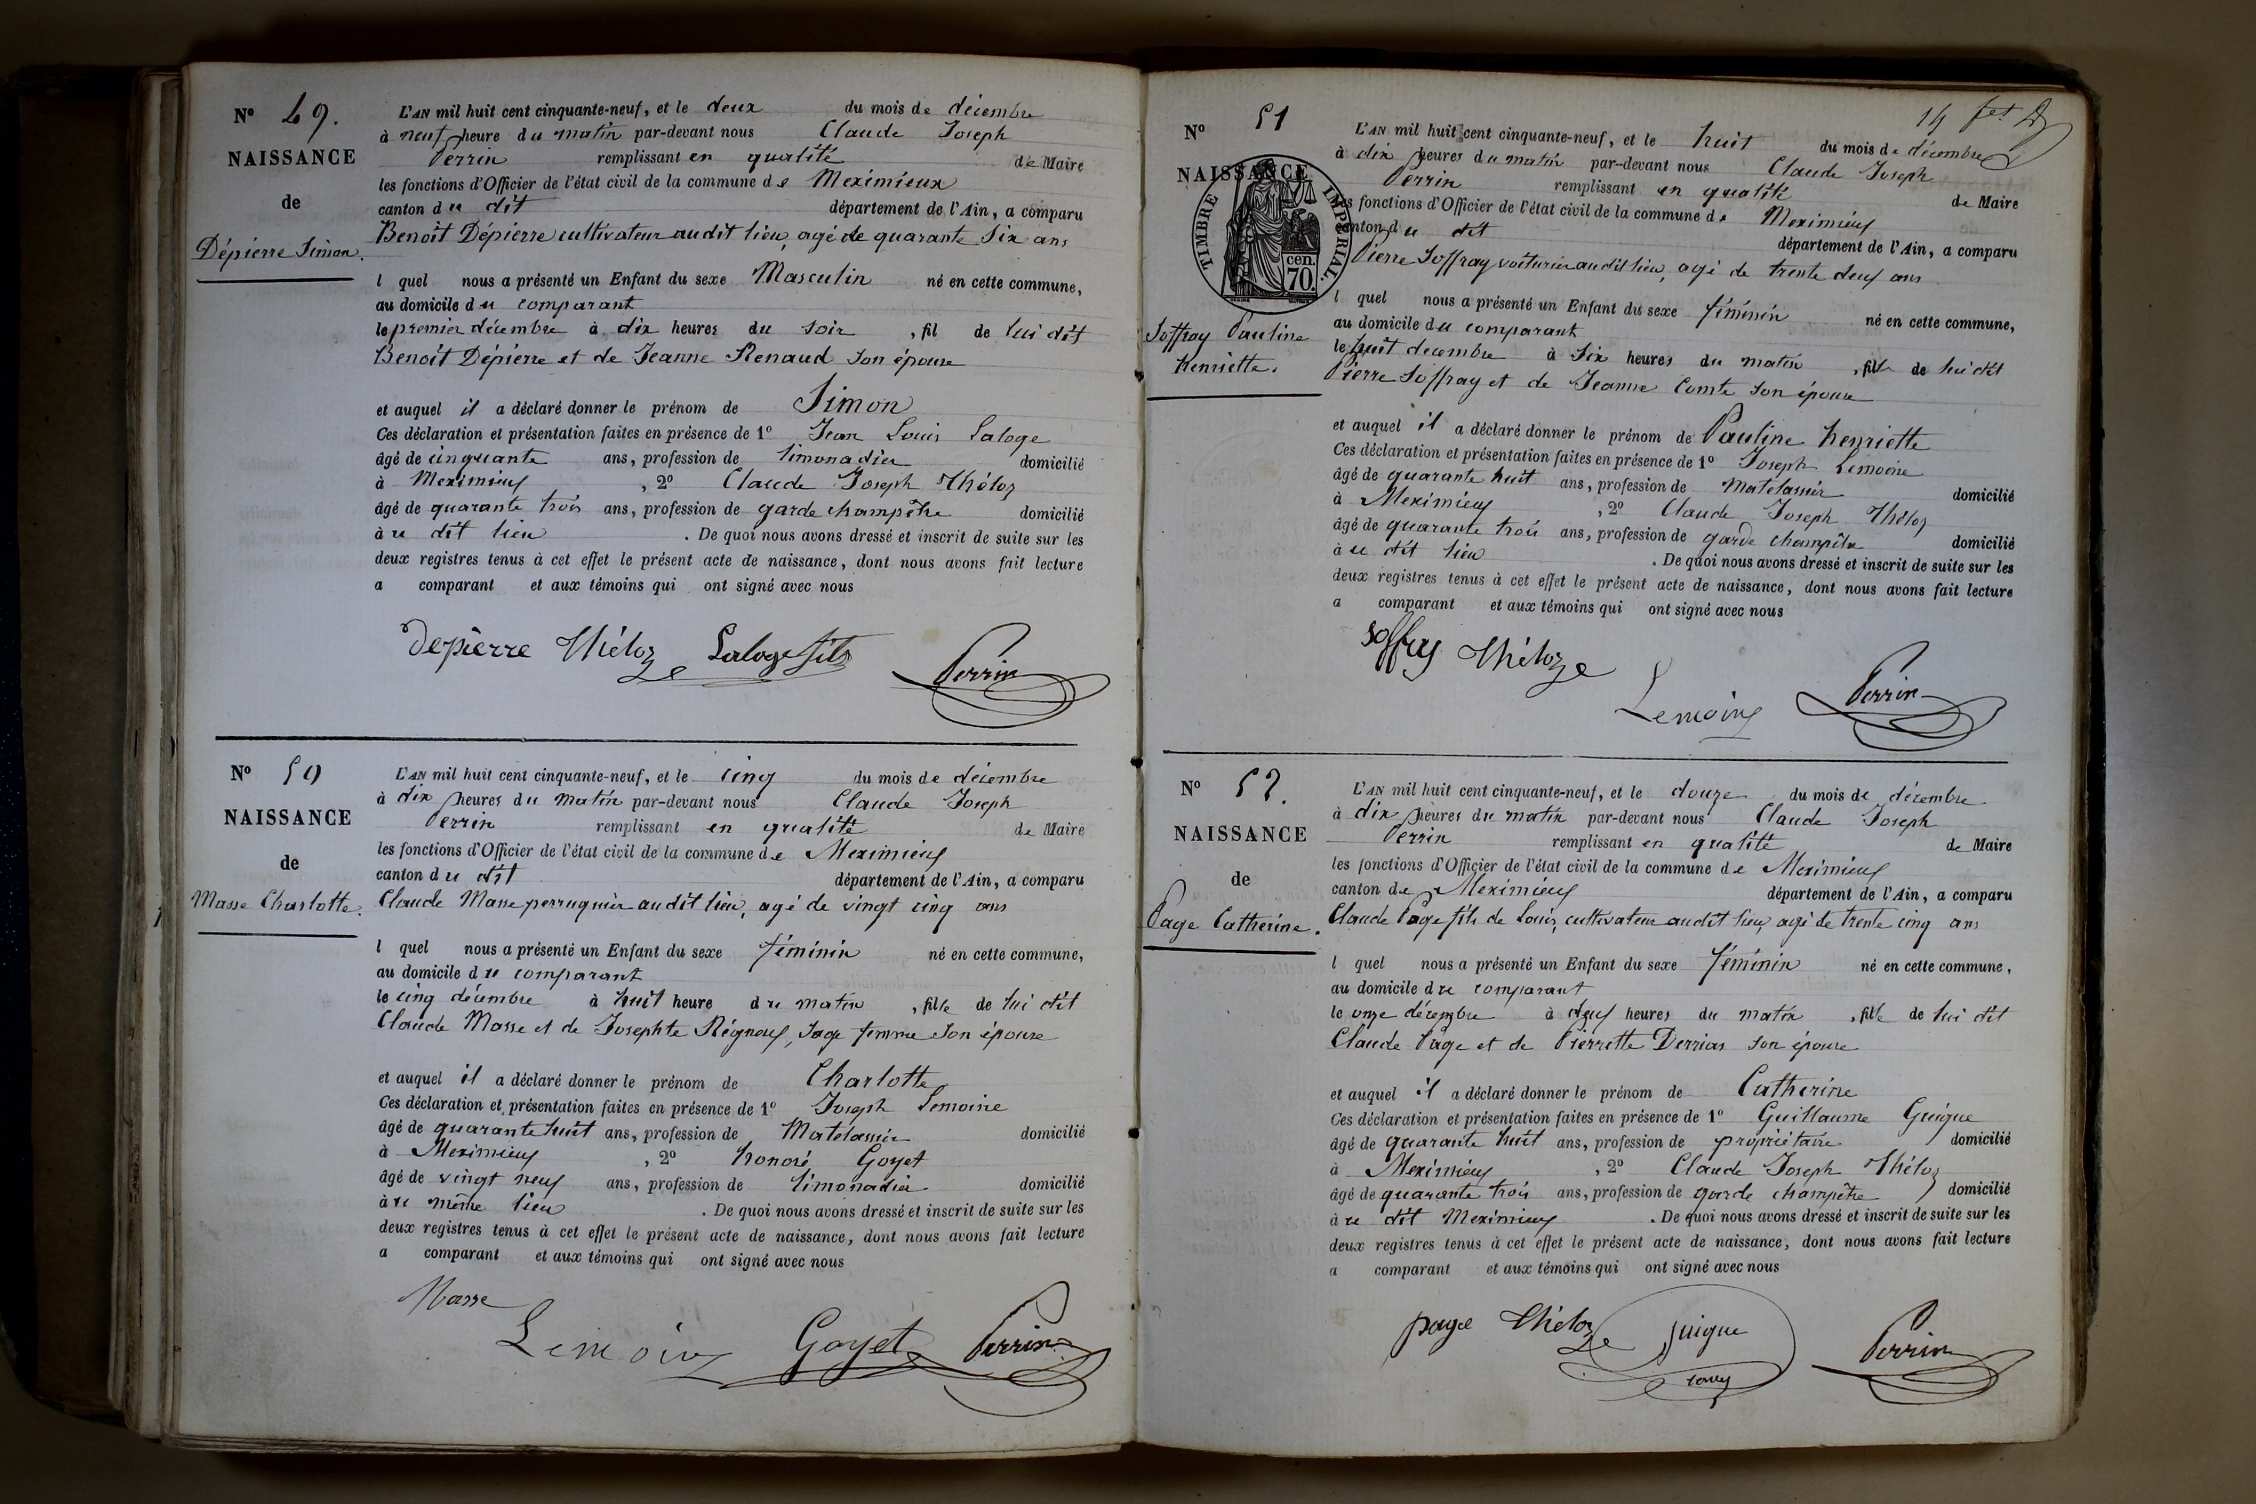 Nº 49.
NAISSANCE
de
Dépierre Simon.
L'AN mil huit cent cinquante-neuf, et le deux du mois de décembre
à neuf heure du matin par-devant nous Claude Joseph
Perrin remplissant en qualité de Maire
les fonctions d'Officier de l'état civil de la commune de Meximieux
canton du dit département de l'Ain, a comparu
Benoît Dépierre cultivateur audit lieu, agé de quarante six ans
l quel nous a présenté un Enfant du sexe Masculin né en cette commune,
au domicile du comparant
le premier décembre à dix heures du soir , fil de lui dit
Benoît Dépierre et de Jeanne Renaud son épouse
et auquel il a déclaré donner le prénom de Simon
Ces déclaration et présentation faites en présence de 1º Jean Louis Laloge
âgé de cinquante ans, profession de limonadier domicilié
à Meximieux , 2º Claude Joseph Théloz
âgé de quarante trois ans, profession de garde champêtre domicilié
à ce dit lieu . De quoi nous avons dressé et inscrit de suite sur les
deux registres tenus à cet effet le présent acte de naissance, dont nous avons fait lecture
a comparant et aux témoins qui ont signé avec nous
depierre Théloz Laloge fils Perrin
Nº 50
NAISSANCE
de
Masse Charlotte.
L'AN mil huit cent cinquante-neuf, et le cinq du mois de décembre
à dix heures du matin par-devant nous Claude Joseph
Perrin remplissant en qualité de Maire
les fonctions d'Officier de l'état civil de la commune de Meximieux
canton du dit département de l'Ain, a comparu
Claude Masse perruquier audit lieu, agé de vingt cinq ans
l quel nous a présenté un Enfant du sexe féminin né en cette commune,
au domicile du comparant
le cinq décembre à huit heure du matin , fille de lui dit
Claude Masse et de Josephte Régneux, sage femme son épouse
et auquel il a déclaré donner le prénom de Charlotte
Ces déclaration et présentation faites en présence de 1º Joseph Lemoine
âgé de quarante huit ans, profession de Matelassier domicilié
à Meximieux , 2º honoré Goyet
âgé de vingt neuf ans, profession de limonadier domicilié
à ce même lieu . De quoi nous avons dressé et inscrit de suite sur les
deux registres tenus à cet effet le présent acte de naissance, dont nous avons fait lecture
a comparant et aux témoins qui ont signé avec nous
Masse
Lemoine Goyet Perrin
14
Nº 51
NAISSANCE
TIMBRE IMPÉRIAL.
cen.
70.
Soffray Pauline
henriette.
L'AN mil huit cent cinquante-neuf, et le huit du mois de décembre
à dix heures du matin par-devant nous Claude Joseph
Perrin remplissant en qualité de Maire
les fonctions d'Officier de l'état civil de la commune de Meximieux
canton du dit département de l'Ain, a comparu
Pierre Soffray voiturier audit lieu, agé de trente deux ans
l quel nous a présenté un Enfant du sexe féminin né en cette commune,
au domicile du comparant
le huit decembre à six heures du matin , fille de lui dit
Pierre Soffray et de Jeanne Comte son épouse
et auquel il a déclaré donner le prénom de Pauline henriette
Ces déclaration et présentation faites en présence de 1º Joseph Lemoine
âgé de quarante huit ans, profession de matelassier domicilié
à Meximieux , 2º Claude Joseph Théloz
âgé de quarante trois ans, profession de garde champêtre domicilié
à ce dit lieu . De quoi nous avons dressé et inscrit de suite sur les
deux registres tenus à cet effet le présent acte de naissance, dont nous avons fait lecture
a comparant et aux témoins qui ont signé avec nous
Soffray Théloz
Lemoine Perrin
Nº 52.
NAISSANCE
de
Page Catherine.
L'AN mil huit cent cinquante-neuf, et le douze du mois de décembre
à dix heures du matin par-devant nous Claude Joseph
Perrin remplissant en qualité de Maire
les fonctions d'Officier de l'état civil de la commune de Meximieux
canton de Meximieux département de l'Ain, a comparu
Claude Page fils de Louis, cultivateur audit lieu, agé de trente cinq ans
l quel nous a présenté un Enfant du sexe féminin né en cette commune,
au domicile du comparant
le onze décembre à deux heures du matin , fille de lui dit
Claude Page et de Pierrette Derrias son épouse
et auquel il a déclaré donner le prénom de Catherine
Ces déclaration et présentation faites en présence de 1º Guillaume Guigue
âgé de quarante huit ans, profession de propriétaire domicilié
à Meximieux , 2º Claude Joseph Théloz
âgé de quarante trois ans, profession de garde champêtre domicilié
à ce dit Meximieux . De quoi nous avons dressé et inscrit de suite sur les
deux registres tenus à cet effet le présent acte de naissance, dont nous avons fait lecture
a comparant et aux témoins qui ont signé avec nous
page Théloz guigue Perrin